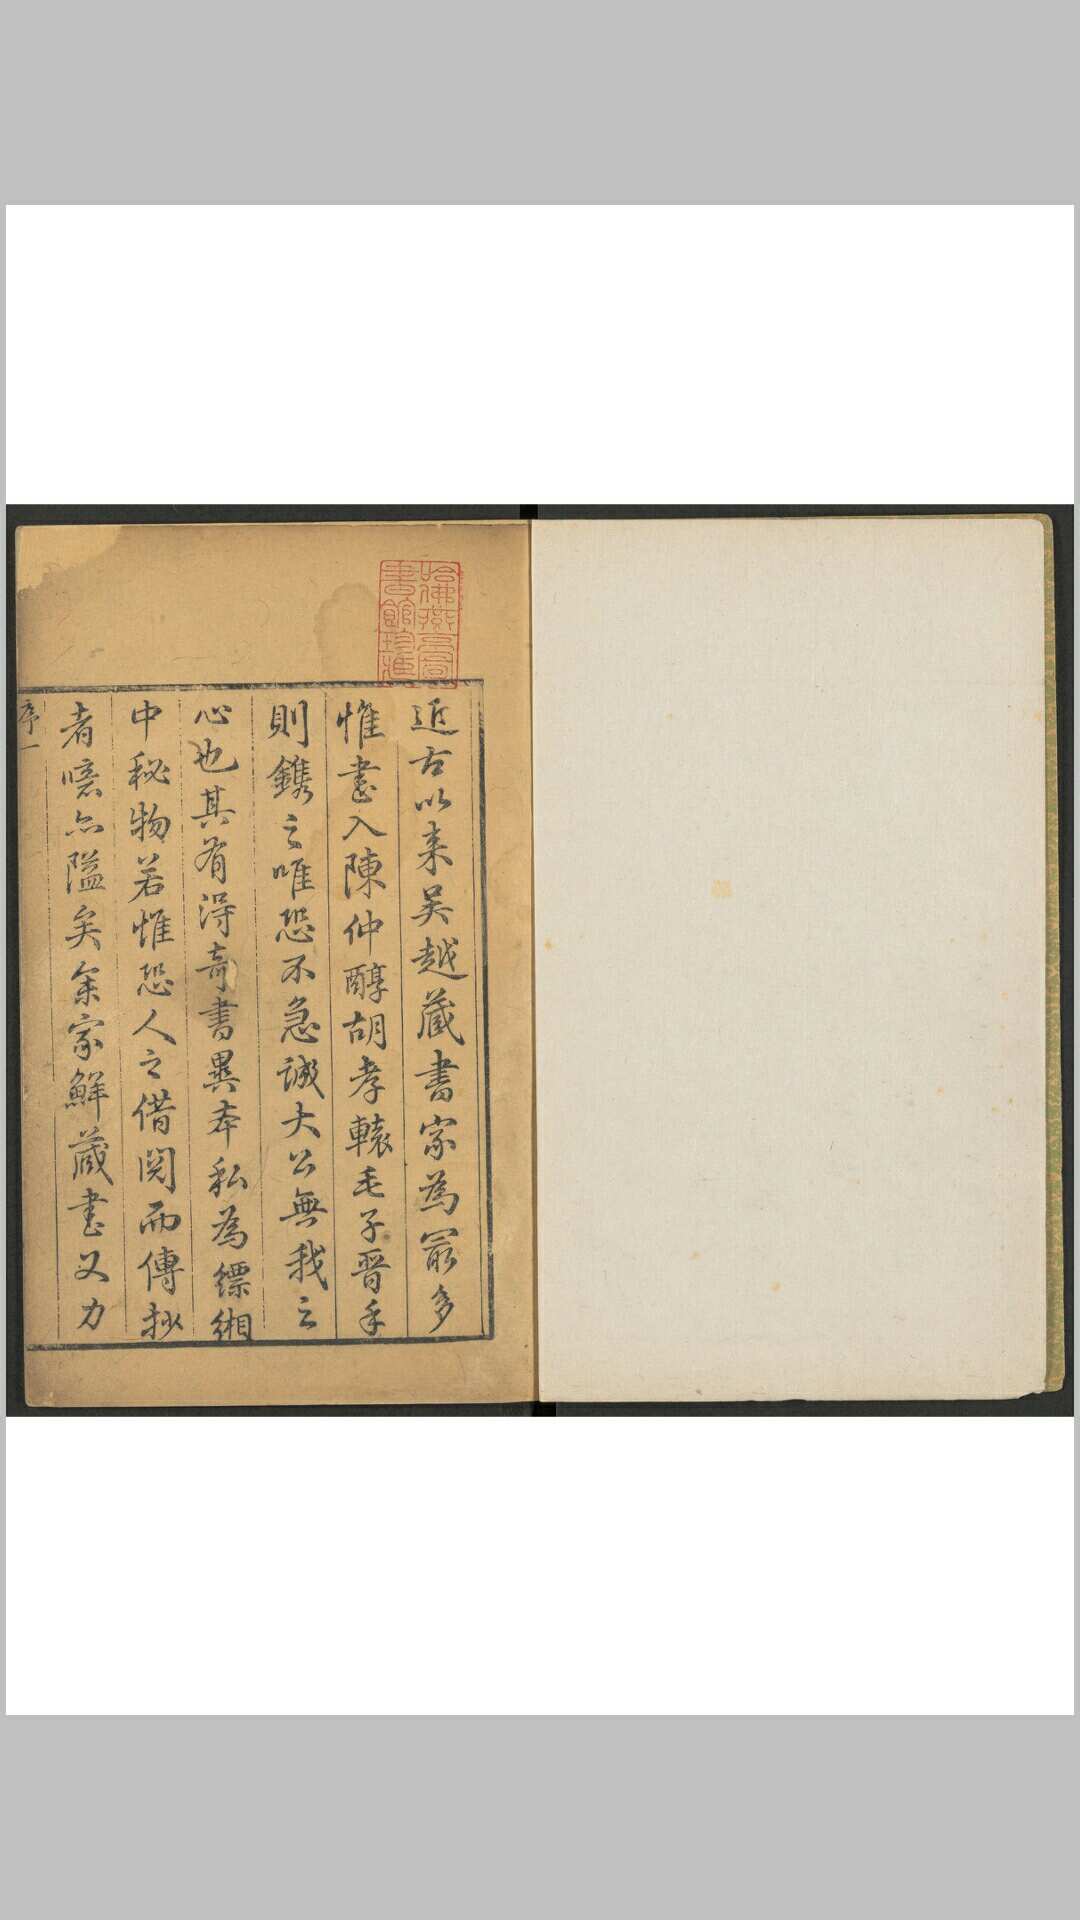 哈佛燕京圖
書館珍藏
近古以来吴越蔵書家為冣多
惟書入陳仲醇胡孝轅毛子晋手
則鐫之唯恐不急誠大公無我之
心也其有得奇書異本私為縹緗
中秘物若惟恐人之借閲而傳抄
者噫亦隘矣余家鮮蔵書又力
序一